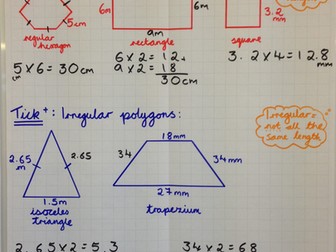 6m
6m
5cm
9m
3.2
mm
regular
hexagon
rectangle
square
5 x 6 = 30 cm
6 x 2 = 12 +
9 x 2 = 18
30 cm
3.2 x 4 = 12.8
mm
Tick +: Irregular polygons:
Irregular =
not all the
same length
18mm
2.65
m
2.65
34
34mm
1.5m
27mm
isozeles
triangle
trapezium
2.65 x 2 = 5.3
34 x 2 = 68